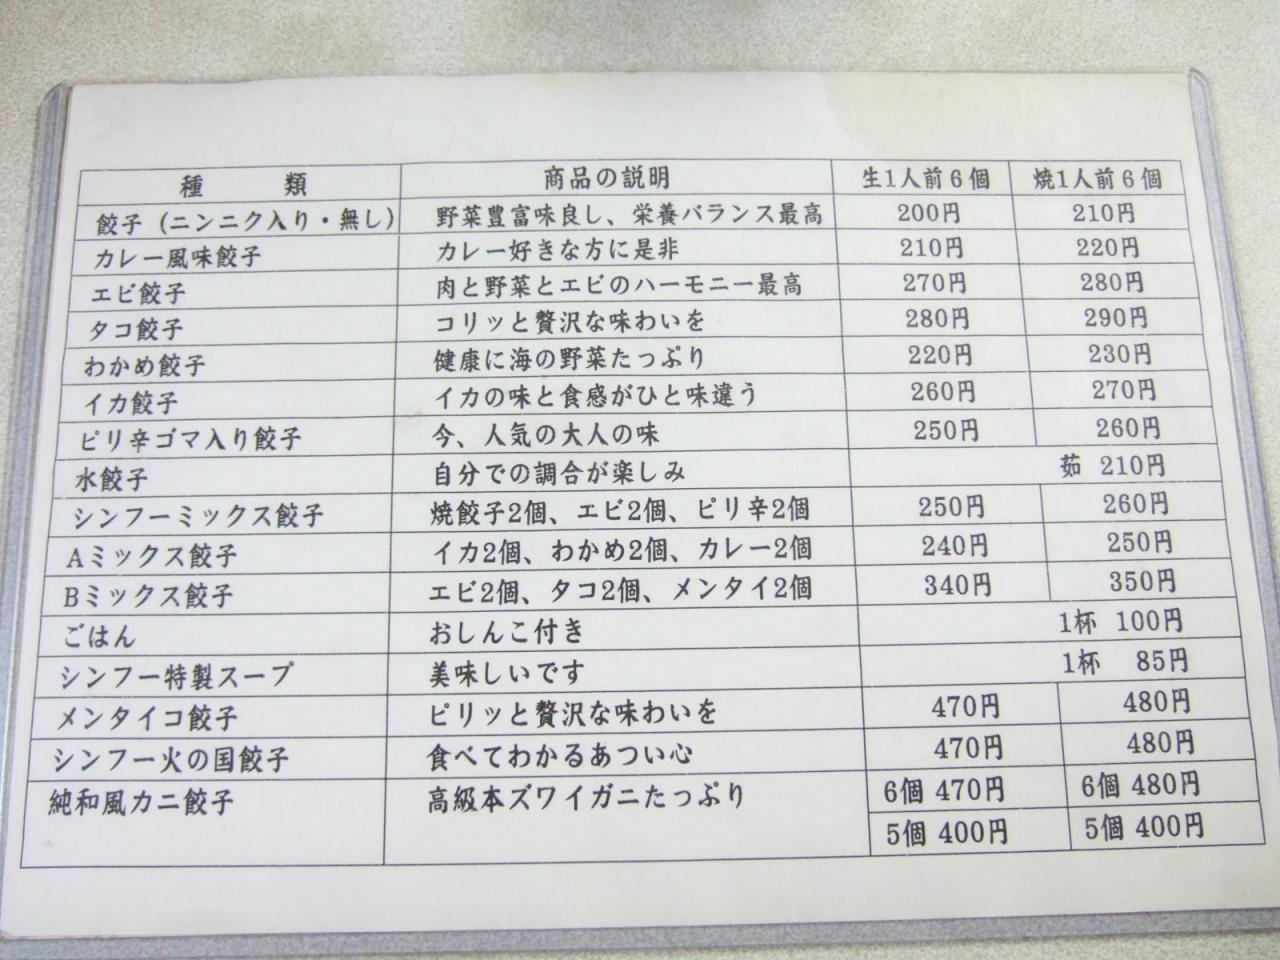 種　類 商品の説明 生1人前6個 焼1人前6個
餃子 (ニンニク入り・無し) 野菜豊富味良し、栄養バランス最高 200円 210円
カレー風味餃子 カレー好きな方に是非 210円 220円
エビ餃子 肉と野菜とエビのハーモニー最高 270円 280円
タコ餃子 コリッと贅沢な味わいを 280円 290円
わかめ餃子 健康に海の野菜たっぷり 220円 230円
イカ餃子 イカの味と食感がひと味違う 260円 270円
ピリ辛ゴマ入り餃子 今、人気の大人の味 250円 260円
水餃子 自分での調合が楽しみ 茹 210円
シンフーミックス餃子 焼餃子2個、エビ2個、ピリ辛2個 250円 260円
Aミックス餃子 イカ2個、わかめ2個、カレー2個 240円 250円
Bミックス餃子 エビ2個、タコ2個、メンタイ2個 340円 350円
ごはん おしんこ付き 1杯 100円
シンフー特製スープ 美味しいです 1杯 85円
メンタイコ餃子 ピリッと贅沢な味わいを 470円 480円
シンフー火の国餃子 食べてわかるあつい心 470円 480円
純和風カニ餃子 高級本ズワイガニたっぷり 6個 470円 6個 480円
5個 400円 5個 400円